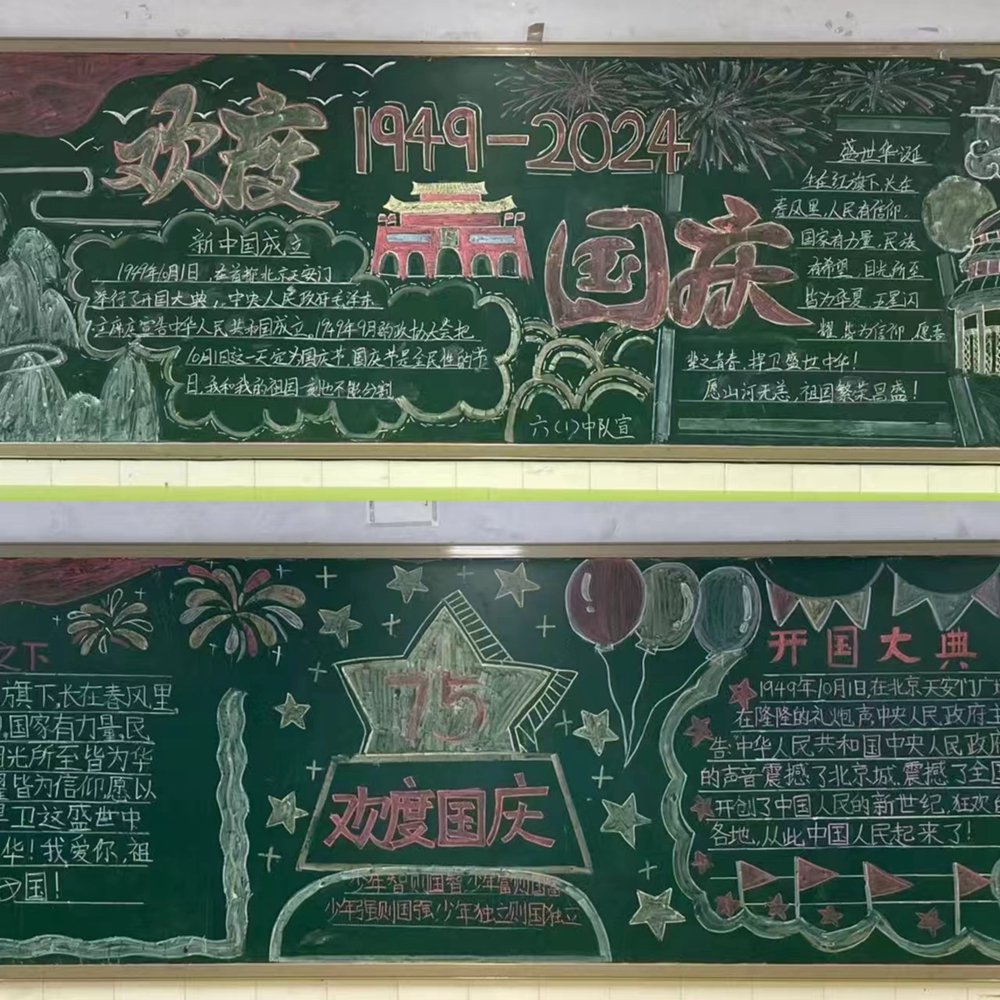 欢度
1949-2024
国庆
新中国成立
1949年10月1日,在首都北京天安门
举行了开国大典,中央人民政府毛泽东
主席庄宣告中华人民共和国成立。1949年9月的政协大会把
10月1日这一天定为国庆节,国庆节是全民性的节
日,我和我的祖国一刻也不能分割
六(1)中队宣
盛世华诞
生在红旗下,长在
春风里,人民有信仰,
国家有力量,民族
有希望,目光所至
皆为华夏,五星闪
耀皆为信仰,愿吾
辈之青春,捍卫盛世中华!
愿山河无恙,祖国繁荣昌盛!
之下
旗下,长在春风里
国家有力量,民
光所至皆为华
皆为信仰,愿以
卫这盛世中
华!我爱你,祖
国!
75
欢度国庆
少年智则国智,少年富则国富
少年强则国强,少年独立则国独立
开国大典
1949年10月1日,在北京天安门广
在隆隆的礼炮声,中央人民政府主
告:中华人民共和国中央人民政府
的声音震撼了北京城,震撼了全国
开创了中国人民的新世纪,狂欢
各地,从此中国人民起来了!